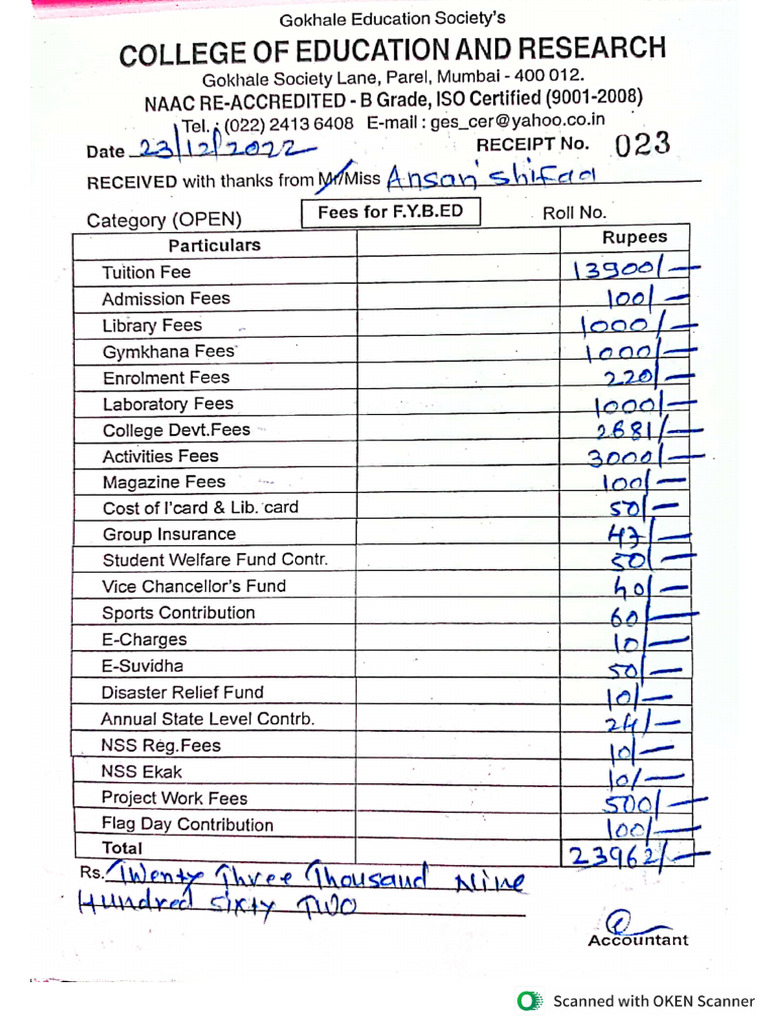 Gokhale Education Society's
COLLEGE OF EDUCATION AND RESEARCH
Gokhale Society Lane, Parel, Mumbai - 400 012.
NAAC RE-ACCREDITED - B Grade, ISO Certified (9001-2008)
Tel. : (022) 2413 6408 E-mail : ges_cer@yahoo.co.in
Date 23/12/2022 RECEIPT No. 023
RECEIVED with thanks from Mr/Miss Ansari Shifaa
Category (OPEN) Fees for F.Y.B.ED Roll No.
Particulars Rupees
Tuition Fee 13900/-
Admission Fees 100/-
Library Fees 1000/-
Gymkhana Fees 1000/-
Enrolment Fees 220/-
Laboratory Fees 1000/-
College Devt.Fees 2681/-
Activities Fees 3000/-
Magazine Fees 100/-
Cost of I'card & Lib. card 50/-
Group Insurance 47/-
Student Welfare Fund Contr. 50/-
Vice Chancellor's Fund 40/-
Sports Contribution 60/-
E-Charges 10/-
E-Suvidha 50/-
Disaster Relief Fund 10/-
Annual State Level Contrb. 24/-
NSS Reg.Fees 10/-
NSS Ekak 10/-
Project Work Fees 500/-
Flag Day Contribution 100/-
Total 23962/-
Rs. Twenty Three Thousand Nine
Hundred Sixty Two
Accountant
Scanned with OKEN Scanner